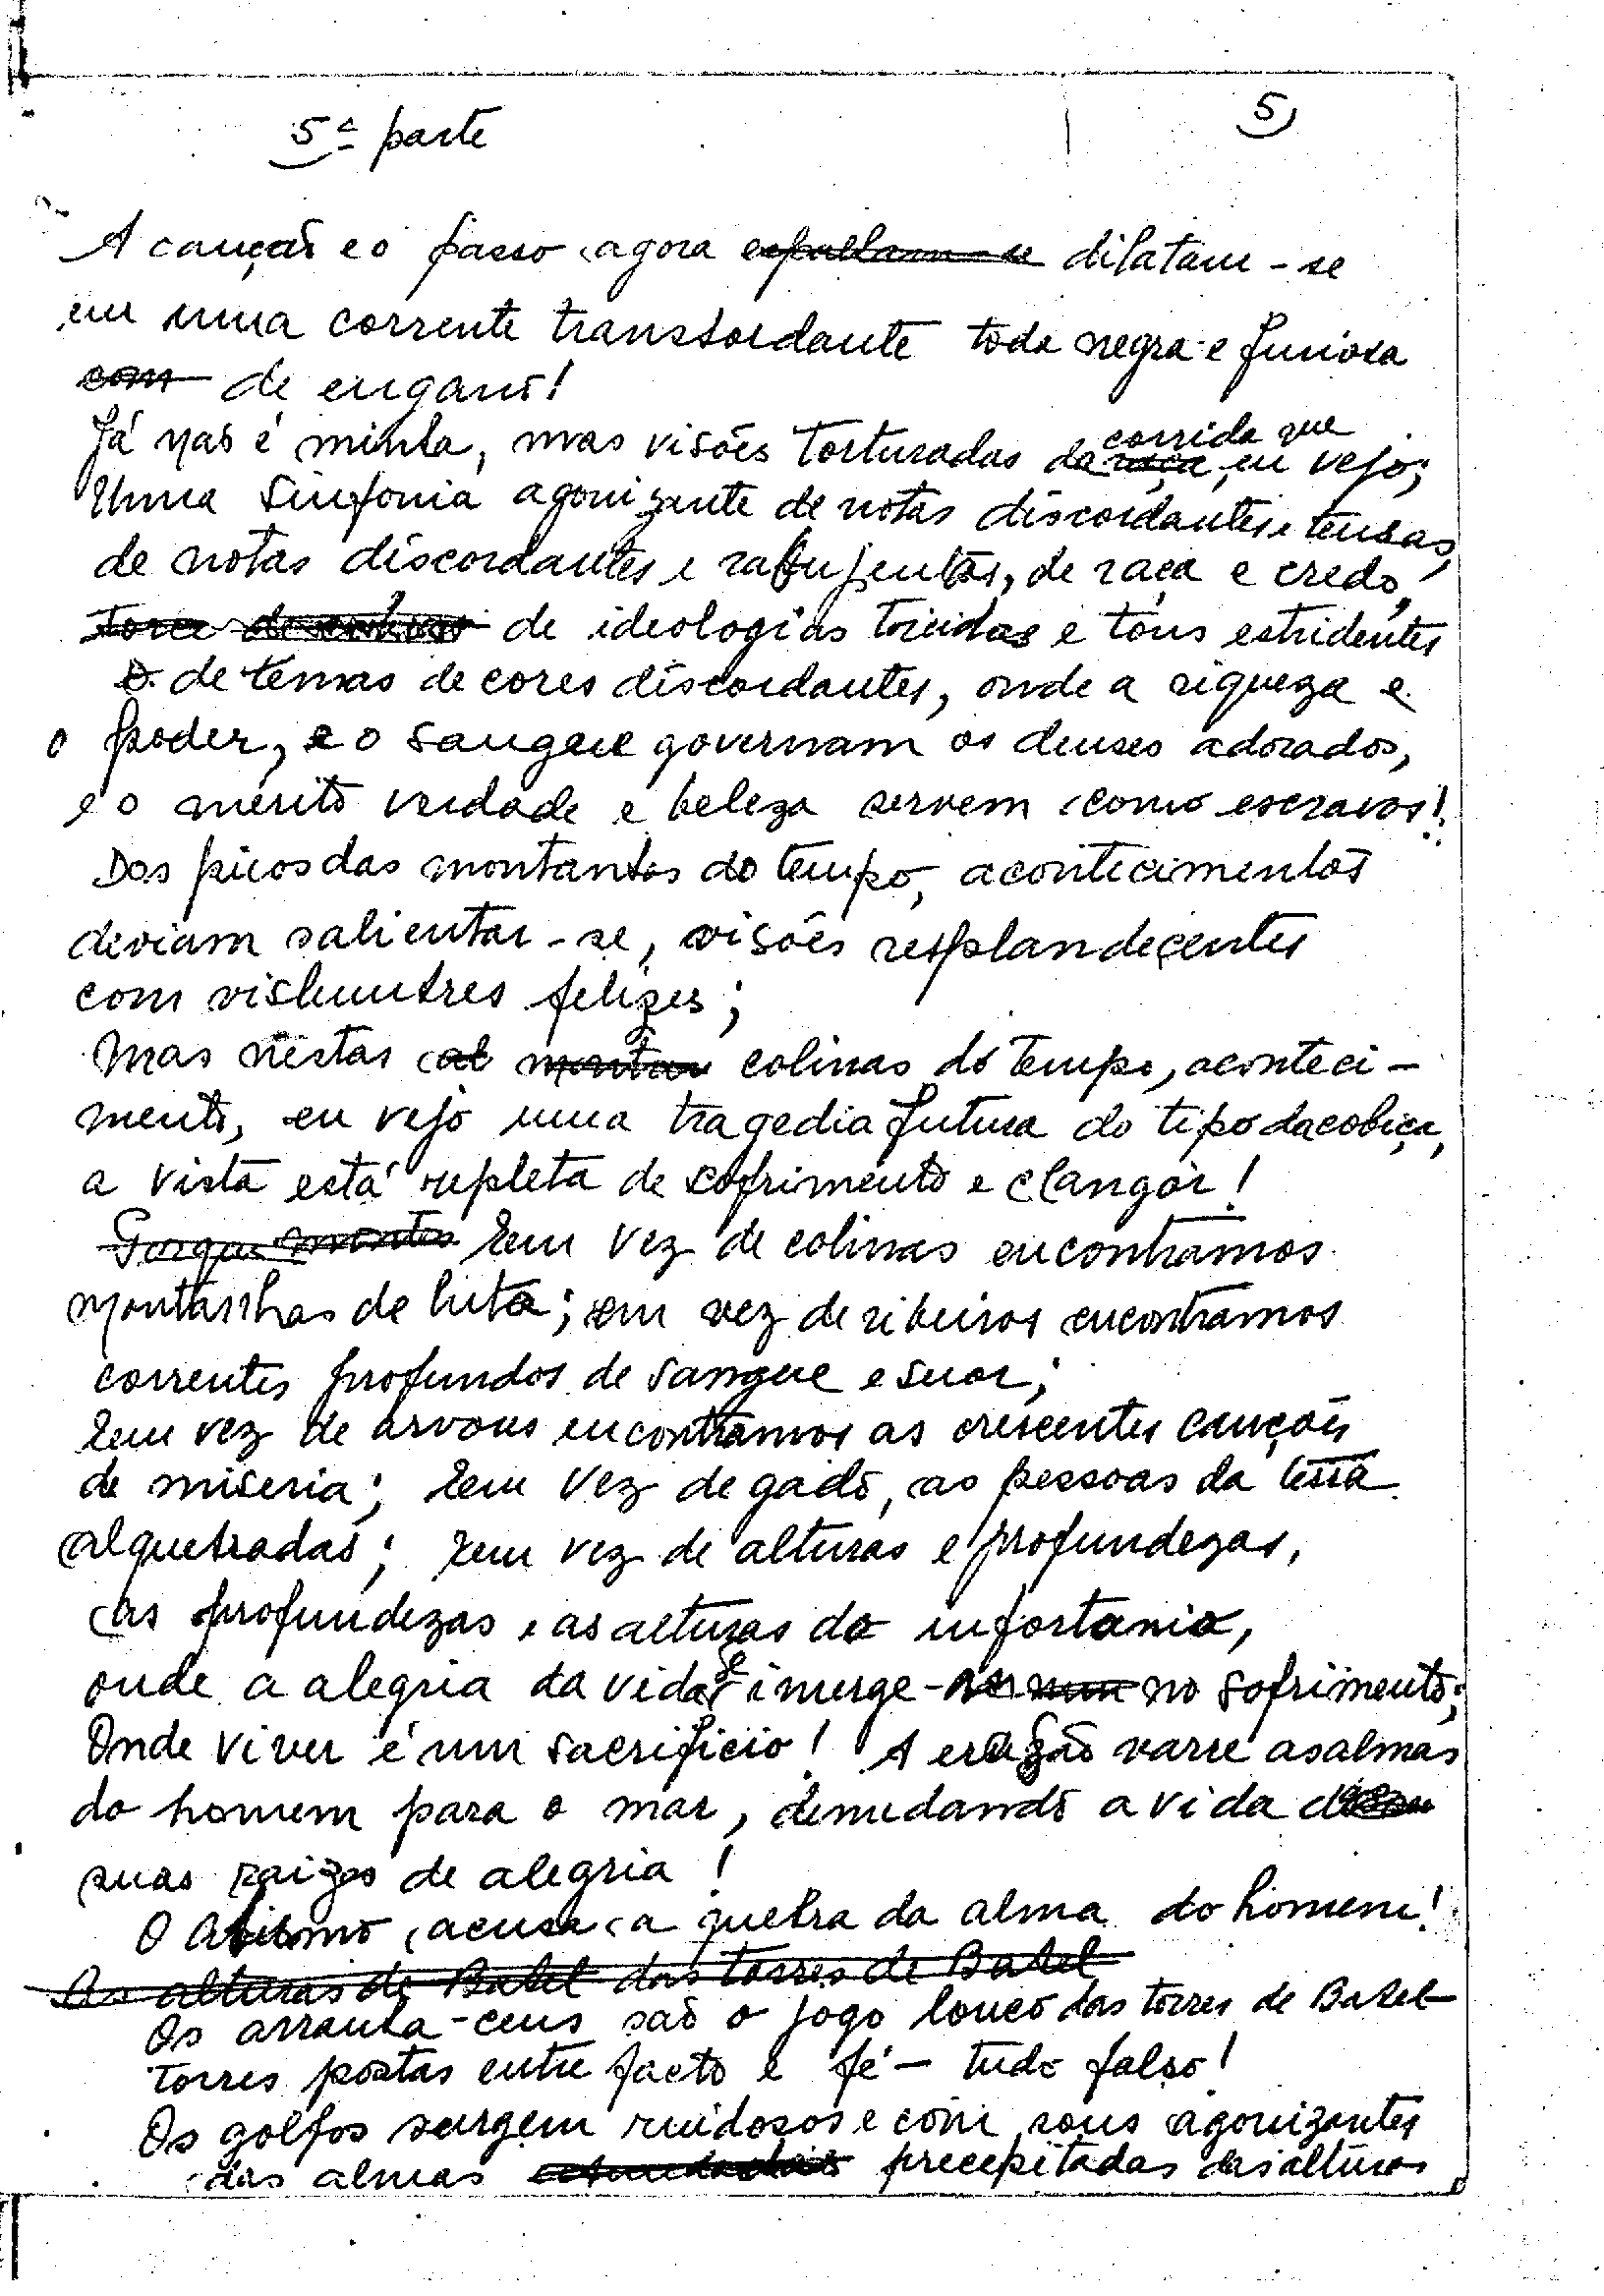 5ª parte
5
A canção e o passo agora espalham-se dilatam-se
em uma corrente transbordante toda negra e furiosa
com de engano!
Já não é minha, mas visões torturadas da raça, corrida que eu vejo;
Uma sinfonia agonizante de notas discordantes e tensas,
de notas discordantes e rabujentas, de raça e credo,
de ideologias torcidas e tons estridentes
e de temas de cores discordantes, onde a riqueza e
o poder, e o sangue governam os deuses adorados,
e o mérito verdade e beleza servem como escravos!
Dos picos das montanhas do tempo, acontecimentos
deviam salientar-se, visões resplandecentes
com vislumbres felizes;
Mas nestas al montan colinas do tempo, aconteci-
mento, eu vejo uma tragedia futura do tipo da cobiça,
a vista está repleta de sofrimento e clangor!
Porque montes Em vez de colinas encontramos
montanhas de luta; em vez de ribeiros encontramos
correntes profundos de sangue e suor;
Em vez de arvores encontramos as crescentes canções
de miseria; Em vez de gado, as pessoas da terra
alquebradas; Em vez de alturas e profundezas,
as profundezas e as alturas do infortunio,
onde a alegria da vida imerge- no sofrimento;
Onde viver é um sacrificio! A erosão varre as almas
do homem para o mar, denudando a vida de
suas raizes de alegria!
O Abismo acusa a quebra da alma do homem!
As alturas de Babel das torres de Babel
Os arranha-ceus são o jogo louco das torres de Babel
Torres postas entre facto e fé - tudo falso!
Os golfos surgem ruidosos e com sons agonizantes
das almas precepitadas das alturas